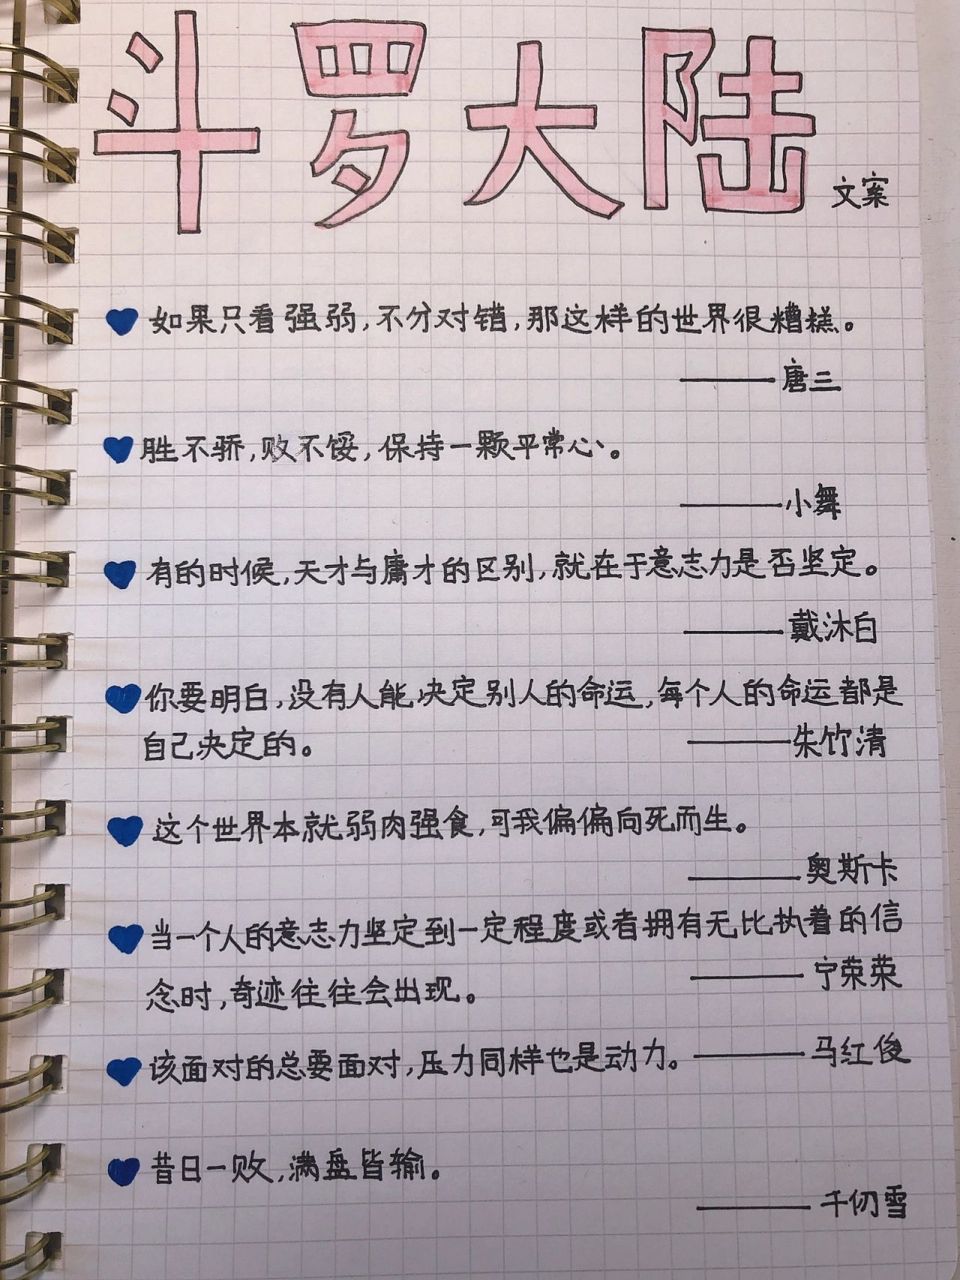 斗罗大陆 文案
如果只看强弱,不分对错,那这样的世界很糟糕。
——唐三
胜不骄,败不馁,保持一颗平常心。
——小舞
有的时候,天才与庸才的区别,就在于意志力是否坚定。
——戴沐白
你要明白,没有人能决定别人的命运,每个人的命运都是
自己决定的。 ——朱竹清
这个世界本就弱肉强食,可我偏偏向死而生。
——奥斯卡
当一个人的意志力坚定到一定程度或者拥有无比执着的信
念时,奇迹往往会出现。 ——宁荣荣
该面对的总要面对,压力同样也是动力。 ——马红俊
昔日一败,满盘皆输。
——千仞雪